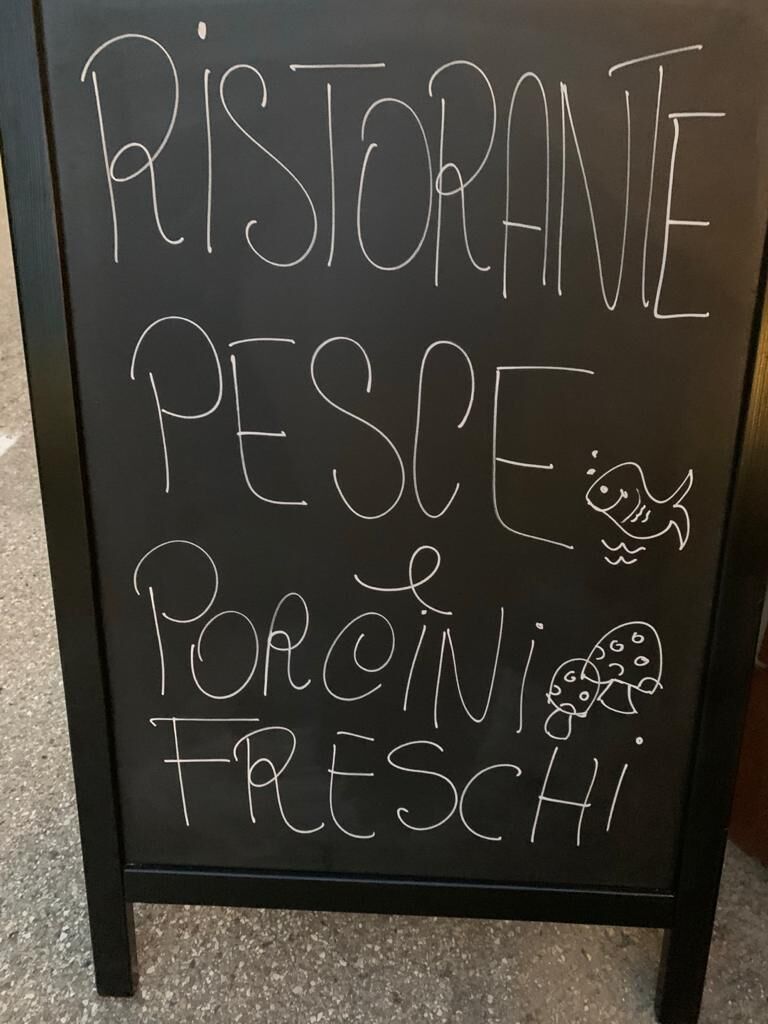 RiSTORANTE
PESCE
e
PORCiNi
FRESCHi